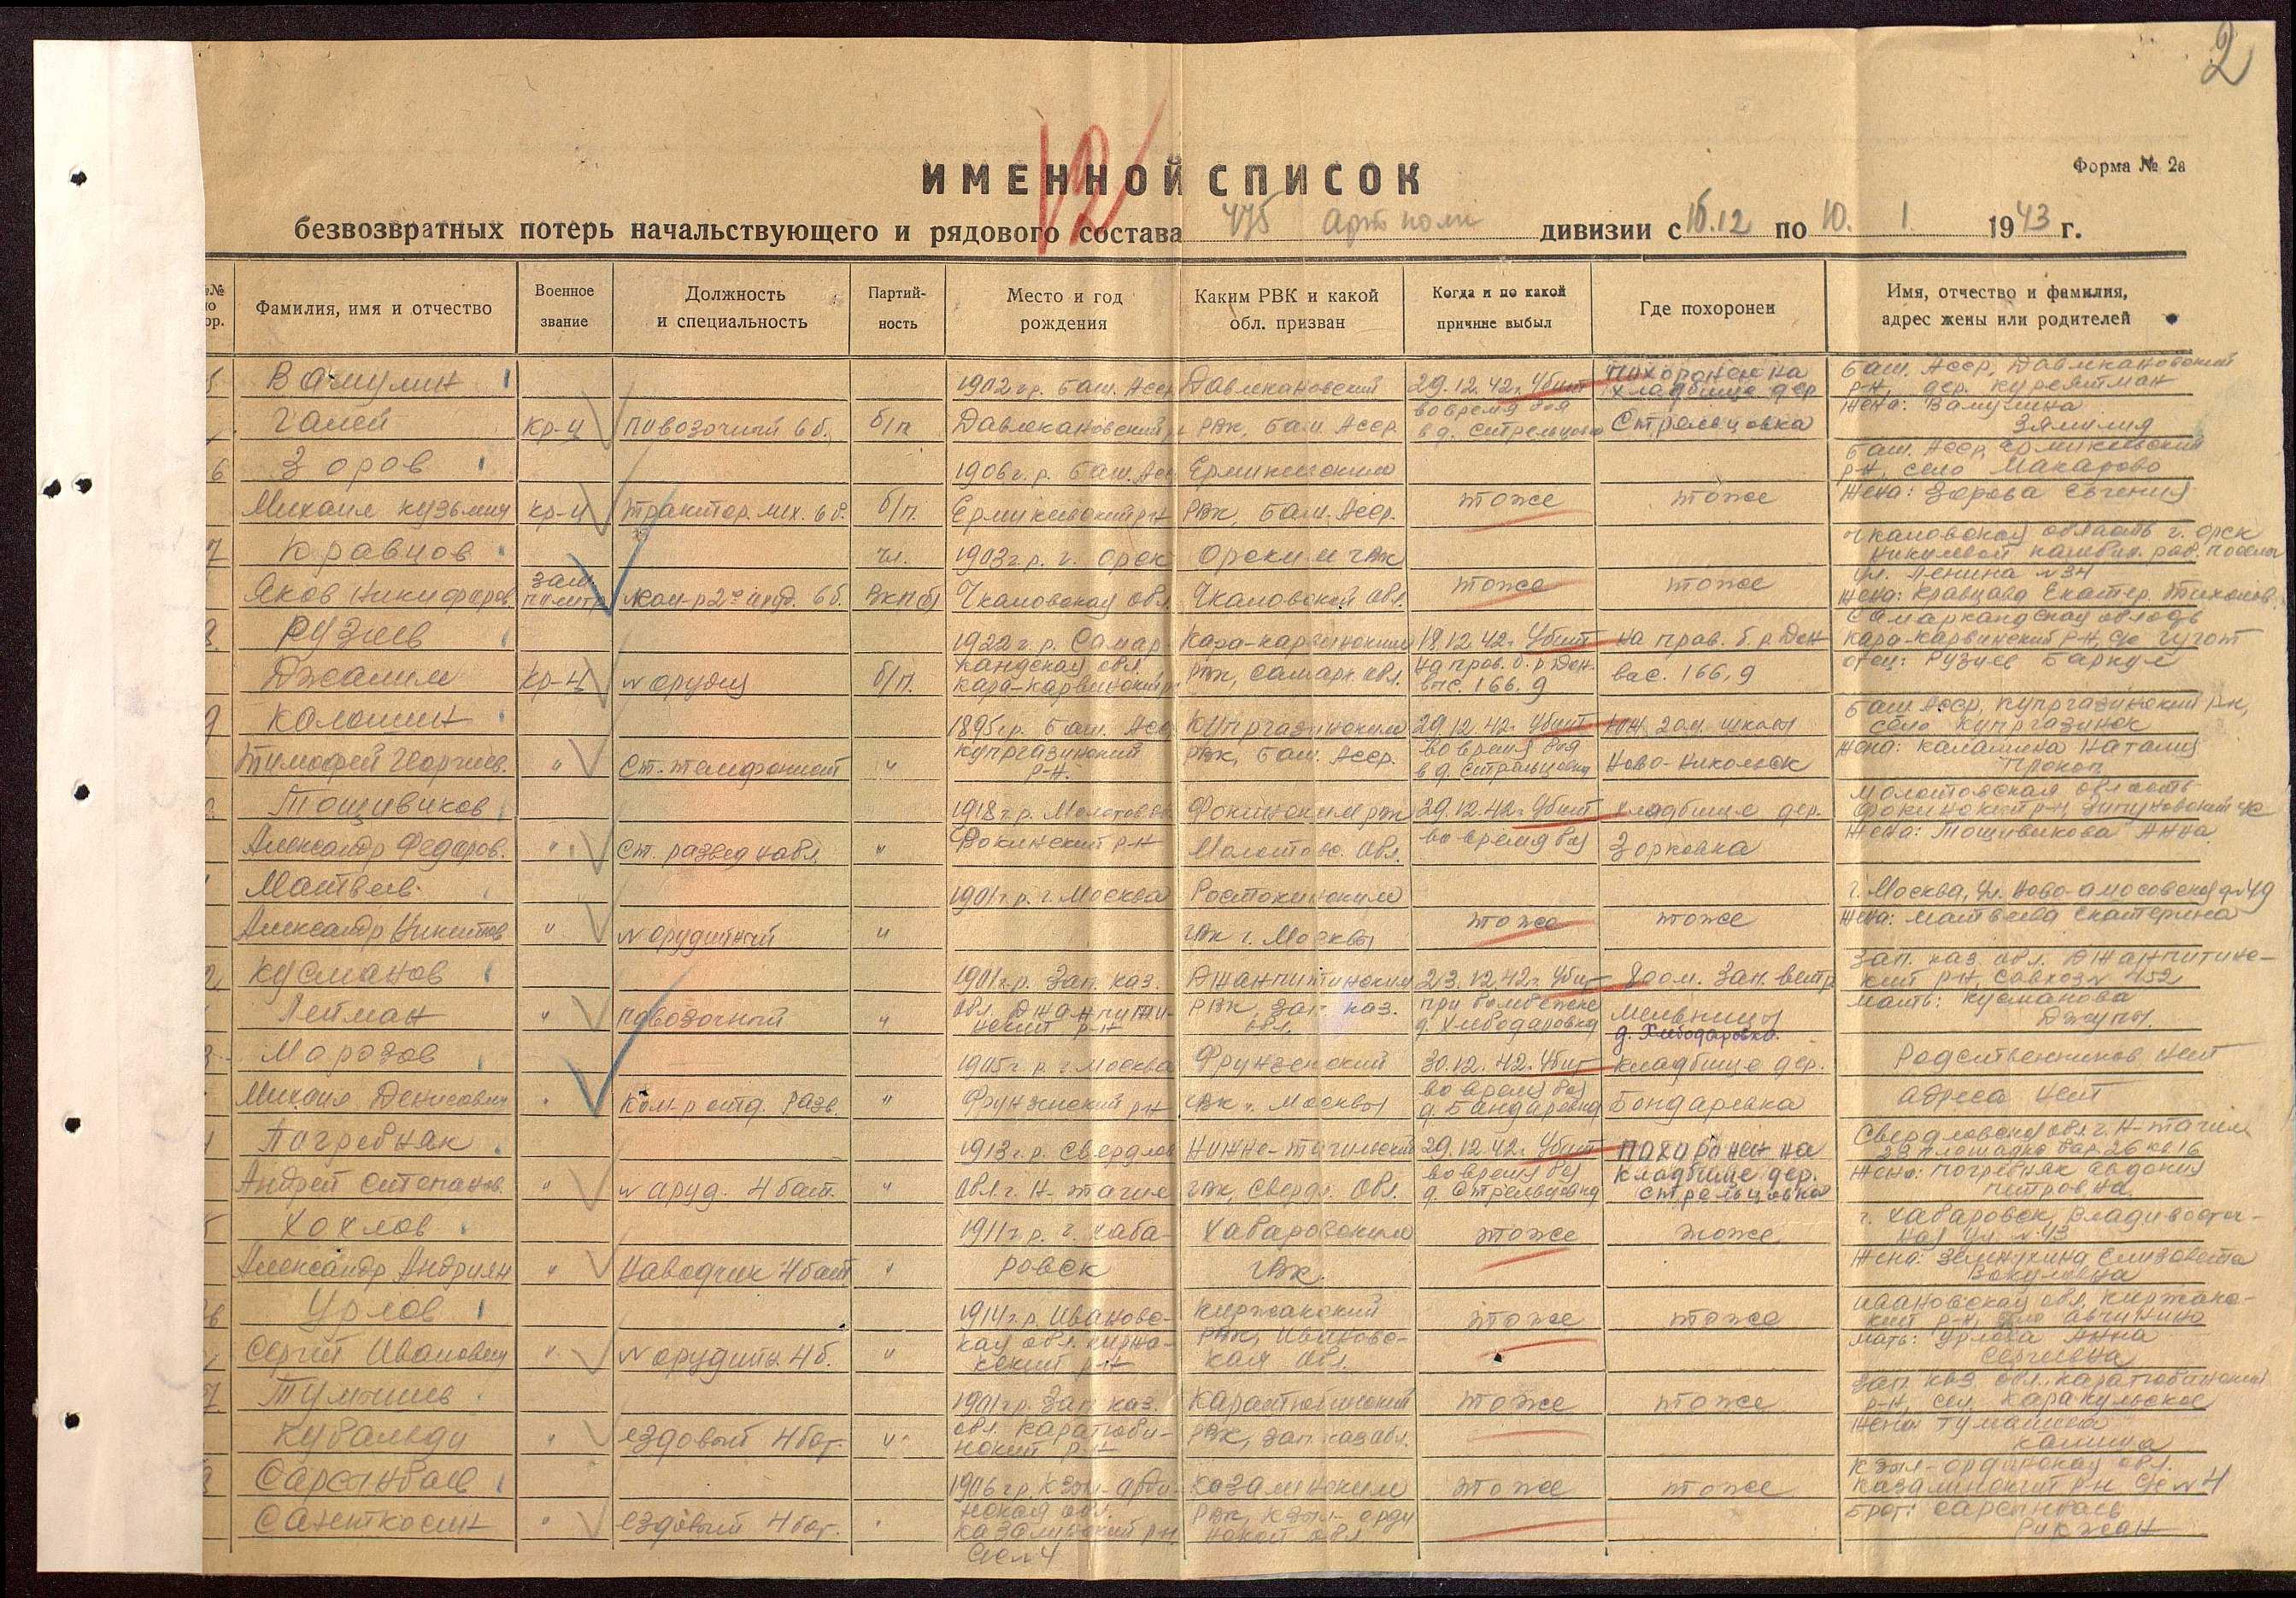 2
12
Форма № 2а
ИМЕННОЙ СПИСОК
безвозвратных потерь начальствующего и рядового состава 475 Арт полк дивизии с 16.12 по 10. 1. 1943 г.
№№ по пор.
Фамилия, имя и отчество
Военное звание
Должность и специальность
Партий-ность
Место и год рождения
Каким РВК и какой обл. призван
Когда и по какой причине выбыл
Где похоронен
Имя, отчество и фамилия, адрес жены или родителей
5 Вамулин
Галей
кр-ц
повозочный 6 б.
б/п
1902 г.р. Баш. Асср
Давлекановский
Давлекановский
РВК, Баш. Асср
29.12.42г. Убит
во время боя
в д. Стрельцовка
Похоронен на
кладбище дер.
Стрельцовка
Баш. Асср, Давлекановский
р-н, дер.
Жена: Вамулина
Зямилия
6 Зоров
Михаил Кузьмич
кр-ц
трактор. мех. 6 б.
б/п.
1906 г.р. Баш. Асс
Ермикеевский р-н
Ермикеевским
РВК, Баш. Асср.
тоже
тоже
Баш. Асср, Ермикеевский
р-н, село Макарово
Жена: Зорова Евгения
7 Кравцов
Яков Никифоров
зам. политр.
ком-р 2го огнд. 6 б.
чл.
ВКП(б)
1903 г.р. г. Орск
Чкаловская обл
Орским ГВК
Чкаловской обл.
тоже
тоже
Чкаловская область г. Орск
Никелевой комбин. раб. поселк
ул. Ленина №34
Жена: Кравцова Екатер. Тихонов.
8. Рузиев
Джалил
кр-ц
№ орудия
б/п.
1922 г.р. Самар-
кандская обл
Кара-
Кара-
РВК, Самарк. обл.
18.12.42г. Убит
на прав. б. р. Дон.
выс. 166,9
на прав. б. р. Дон
выс. 166,9
Самаркандская область
отец: Рузиев Баркул
9 Калошин
Тимофей Георгиев.
"
Ст. телефонист
"
1895 г.р. Баш. Асс
р-н.
РВК, Баш. Асср.
29.12.42г. Убит
во время боя
в д. Стрельцовка
школы
Ново-Никольск
Баш. Асср,
село
Жена: Калашина Наталия
Прокоп.
Тощевиков
Александр Федоров.
"
Ст. развед набл.
"
1918 г.р. Молотов
Фокинский р-н
Фокинским рвк
Молотов. обл.
29.12.42г. Убит
во время боя
кладбище дер.
Зорковка
Молотовская область
Жена: Тощевикова Анна
Матвеев.
Александр Никитов
"
№ орудийный
"
1901 г.р. г. Москва
Ростокинским
РВК г. Москвы
тоже
тоже
г. Москва, ул. Ново-
Жена: Матвеева Екатерина
2 Кусманов
Лейман
"
повозочный
"
1901 г.р. Зап. каз.
обл. Джанпити-
нский р-н
Джанпитинским
РВК, Зап. каз.
обл.
23.12.42г. Убит
при бомбежке
д. Хлебодаровка
800 м. Зап. ветр
мельницы
д. Хлебодаровка.
Зап. каз. обл. Джанпитинс-
кий р-н, совхоз № 452
мать: Кусманова
3 Морозов
Михаил Денисович
"
Ком-р отд. разв.
"
1905 г.р. г. Москва
Фрунзенский р-н
Фрунзенский
РВК г. Москвы
30.12.42. Убит
во время боя
д. Бандаревка
кладбище дер.
Бондаревка
Родственников нет
адреса нет
4 Погребняк
Андрей Степанов.
"
№ оруд. 4 бат.
"
1913 г.р. Свердлов
обл. г. Н-Тагил
Нижне-Тагильский
ГВК, Свердл. обл.
29.12.42г. Убит
во время боя
д. Стрельцовка
похоронен на
кладбище дер.
Стрельцовка
Свердловская обл. г. Н-тагил
29 площадка бар. 26 кв 16
Жена: Погребняк Авдотия
Петровна.
5 Хохлов
Александр Андриян
"
Наводчик 4 бат
"
1911 г.р. г. Хаба-
ровск
Хабаровским
ГВК.
тоже
тоже
г. Хабаровск, Владивосток-
ная ул. № 43
Жена: Елизовета
Вакуловна
6 Урлов
Сергей Иванович
"
№ орудийн. 4 б.
"
1914 г.р. Ивановс-
кая обл. Киржа-
чский р-н
Киржачский
РВК, Ивановс-
кая обл.
тоже
тоже
Ивановская обл. Киржачс-
кий р-н,
мать: Урлова Анна
Сергеевна
7 Тумашев
Кубаледи
"
ездовый 4 бат.
"
1901 г.р. Зап. каз.
обл. Каратюби-
нский р-н
Каратюбинский
РВК, Зап. каз обл.
тоже
тоже
Зап. каз. обл., Каратюбинский
р-н, сел. Каракульское
Жена Тумашева
Калима
8 Сарсенбаев
"
ездовый 4 бат.
"
1906 г.р. Кзыл-Орди-
нская обл.
Казалинский р-н.
С/с № 4
Казалинским
РВК, Кзыл-орди
нской обл.
тоже
тоже
Кзыл-ординская обл.
Казалинский р-н С/с № 4
брат: Сарсенбаев